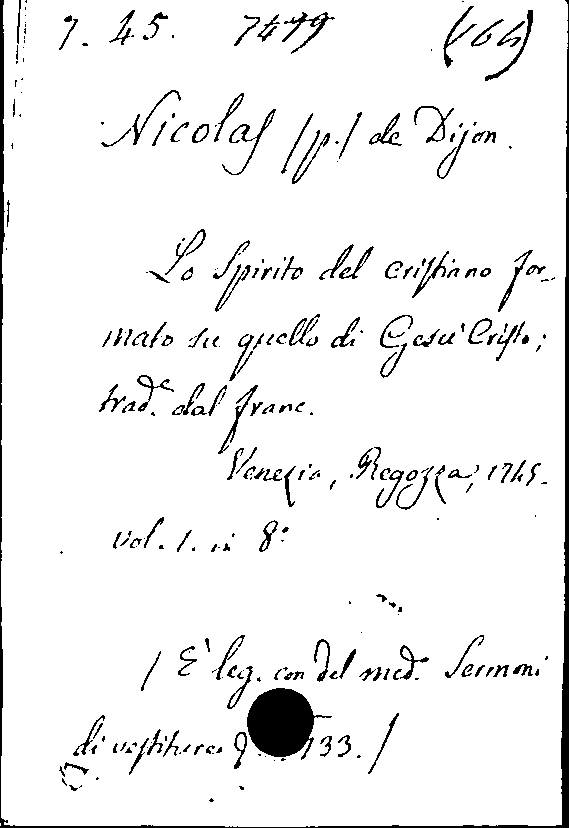 7. 45. 7479 (164)
Nicolas /p./ de Dijon.
Lo Spirito del cristiano for-
mato su quello di Gesù Cristo;
trad.e dal franc.
Venezia, Regozza, 1745.
vol. 1. in 8º
/ È leg. con del med.º Sermoni
di vestiture 133. /